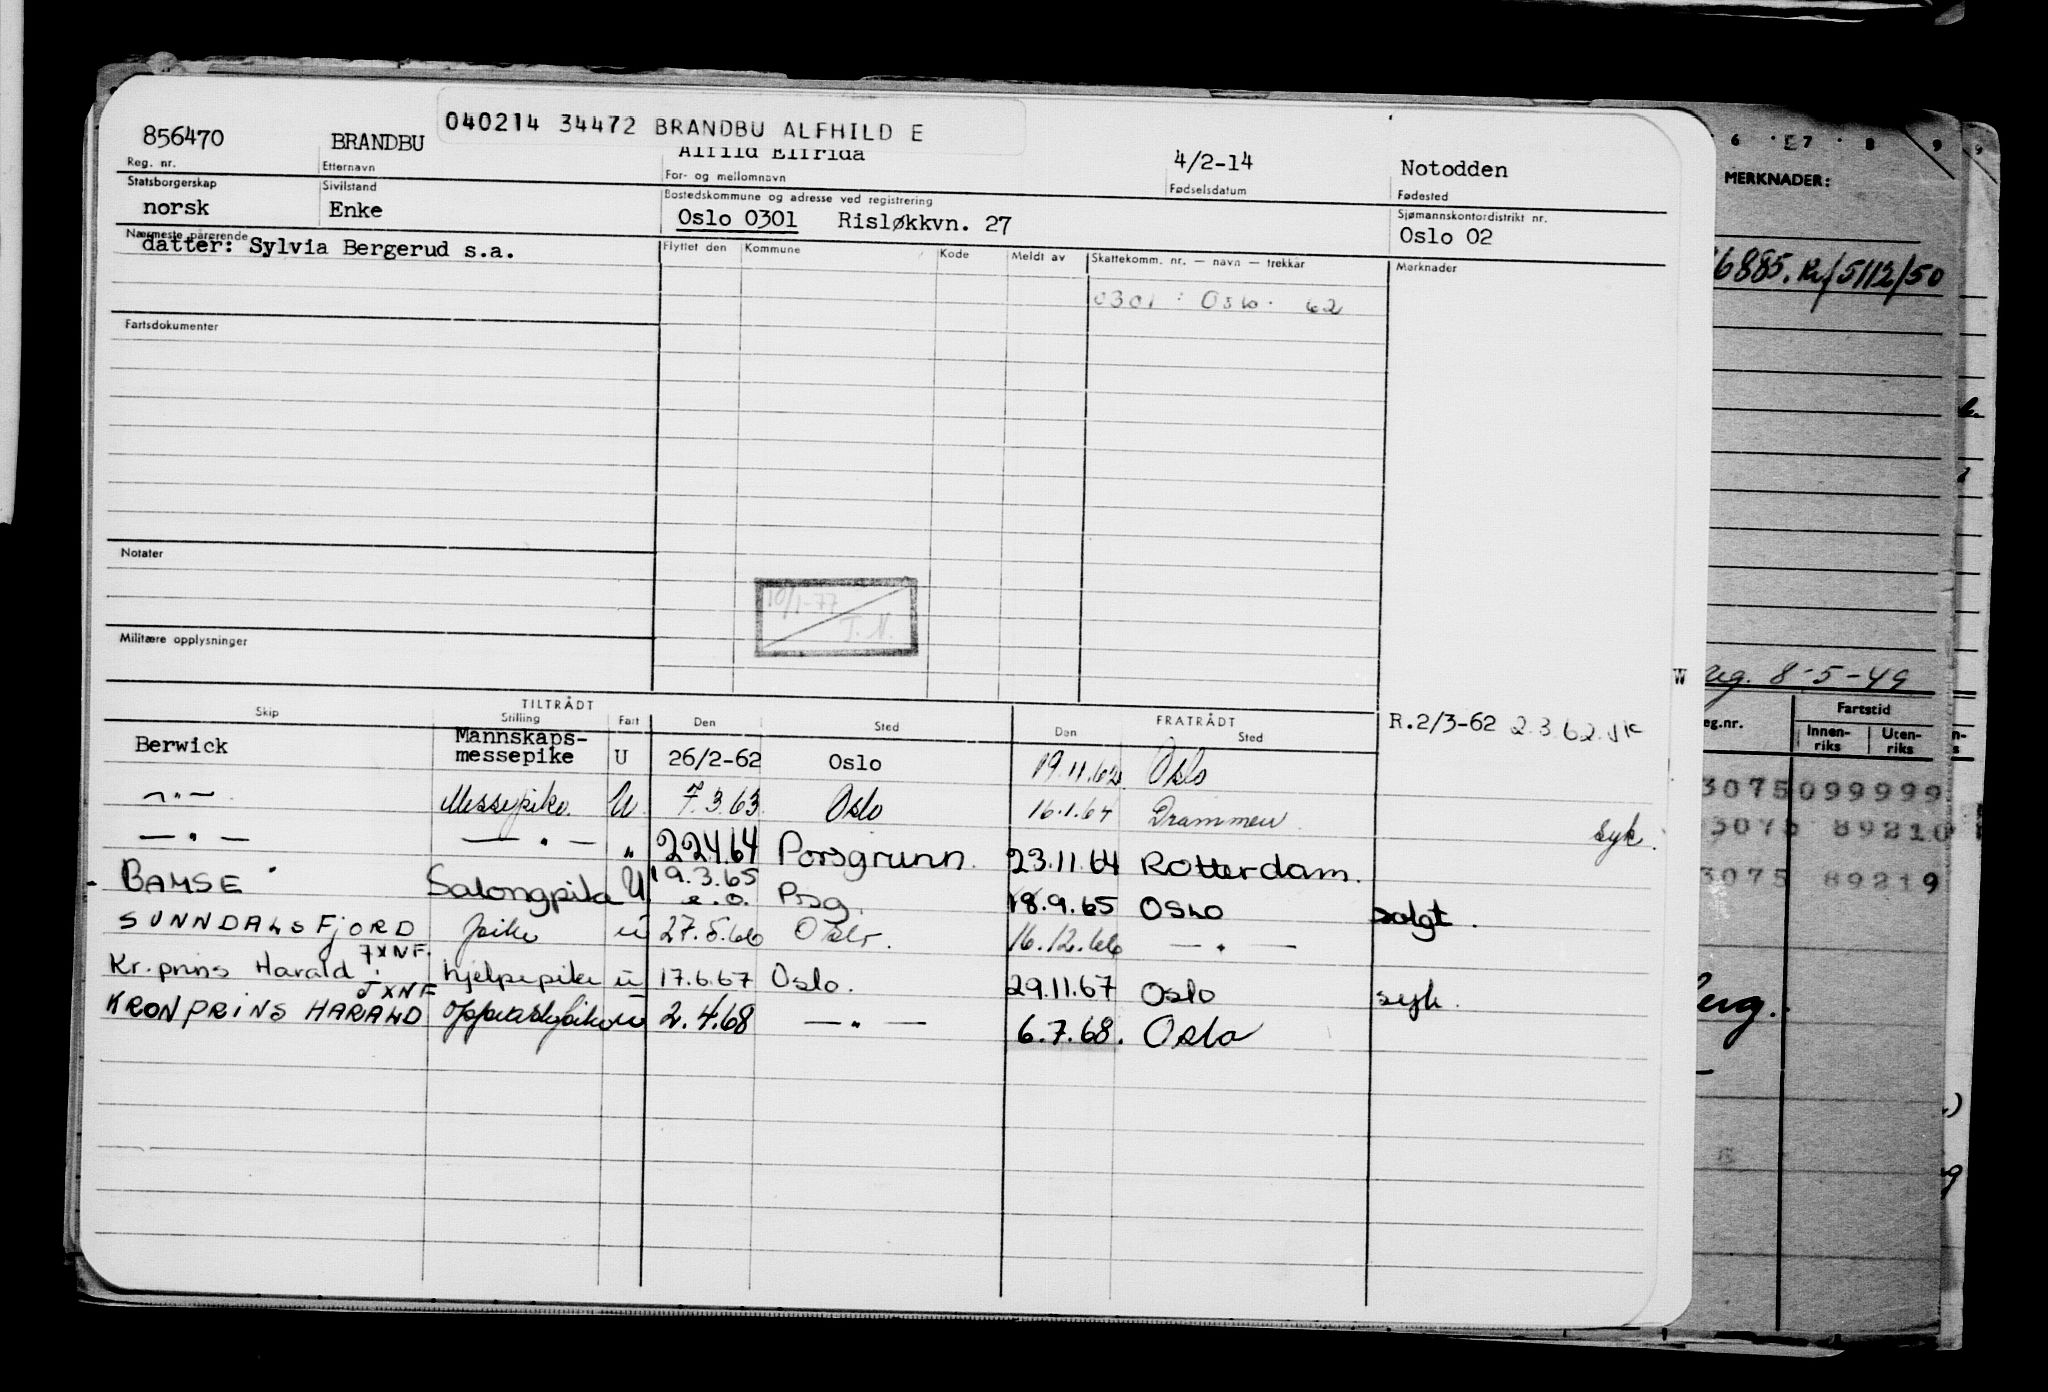 040214 34472 BRANDBU ALFHILD E
856470 BRANDBU Alfild Elfrida 4/2-14 Notodden
Reg. nr. Etternavn For- og mellomnavn Fødselsdatum Fødested
Statsborgerskap Sivilstand Bostedskommune og adresse ved registrering Sjømannskontordistrikt nr.
norsk Enke Oslo 0301 Risløkkvn. 27 Oslo 02
Nærmeste pårørende Flyttet den Kommune Kode Meldt av Skattekomm. nr. — navn — trekkår Merknader
datter: Sylvia Bergerud s.a.
0301 : Oslo. 62
Fartsdokumenter
Notater
10/1-77
J. N.
Militære opplysninger
TILTRÅDT FRATRÅDT
Skip Stilling Fart Den Sted Den Sted
R.2/3-62 2.3.62.
Berwick Mannskaps-
messepike U 26/2-62 Oslo 19.11.62 Oslo
— " — Messepike U. 7.3.63. Oslo 16.1.64 Drammen. syk.
— " — — " — " 22.4.64 Porsgrunn. 23.11.64 Rotterdam.
BAMSE Salongpike U 19.3.65
e.o. Psg. 18.9.65 OSLO solgt.
SUNNDALSFJORD pike u 27.5.66 Oslo. 16.12.66 — " —
JXNF.
Kr. prins Harald hjelpepike u 17.6.67 Oslo. 29.11.67 Oslo syk.
JXNF
KRONPRINS HARALD u 2.4.68 — " — 6.7.68. Oslo
6 E7 8 9 9
MERKNADER:
6885. 5/12/50
W reg. 8-5-49
eg.nr. Fartstid
Innen-
riks Uten-
riks
3075 099999
3075 89210
3075 89219